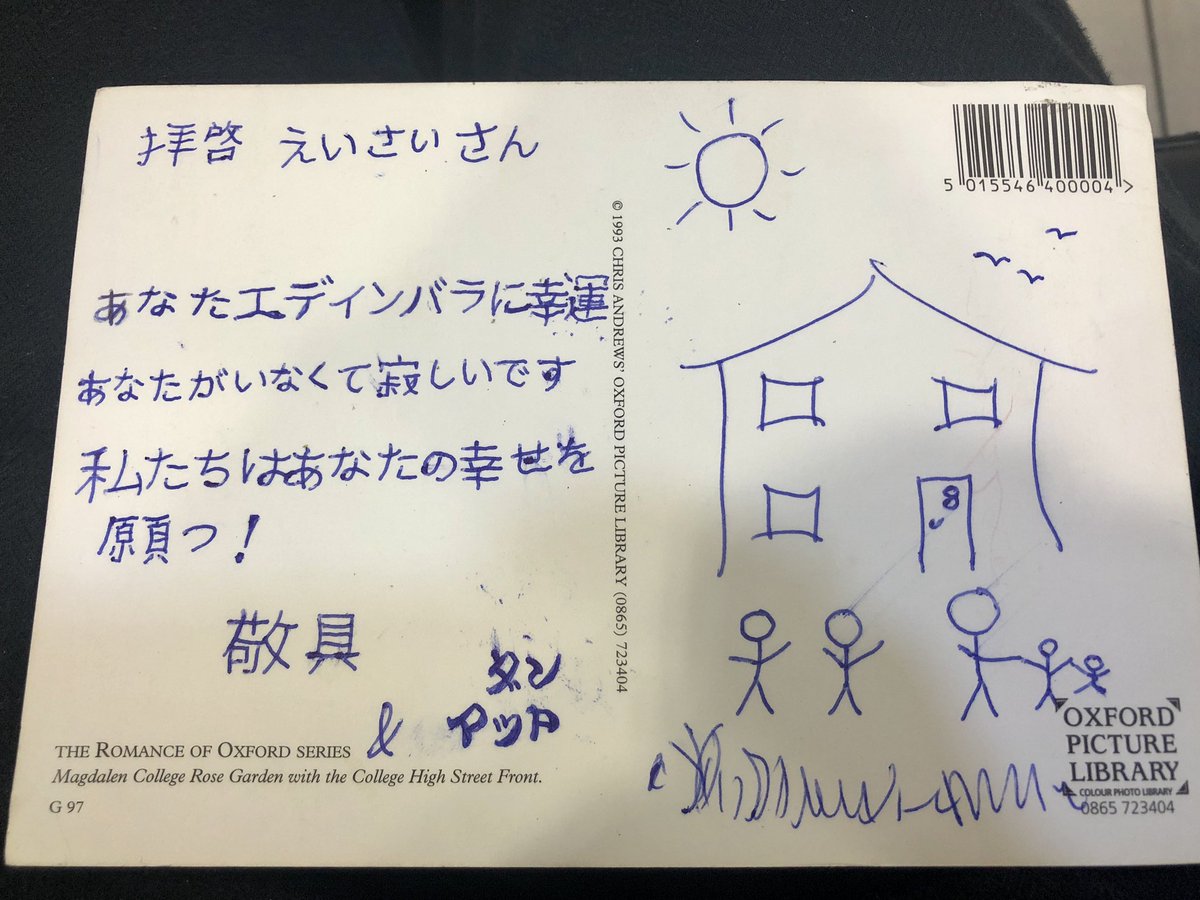 拝啓 えいさいさん
あなたエディンバラに幸運
あなたがいなくて寂しいです
私たちはあなたの幸せを
願つ!
敬具
ダン
& マット
THE ROMANCE OF OXFORD SERIES
Magdalen College Rose Garden with the College High Street Front.
G 97
© 1993 CHRIS ANDREWS' OXFORD PICTURE LIBRARY (0865) 723404
5 015546 400004 >
8
OXFORD
PICTURE
LIBRARY
COLOUR PHOTO LIBRARY
0865 723404